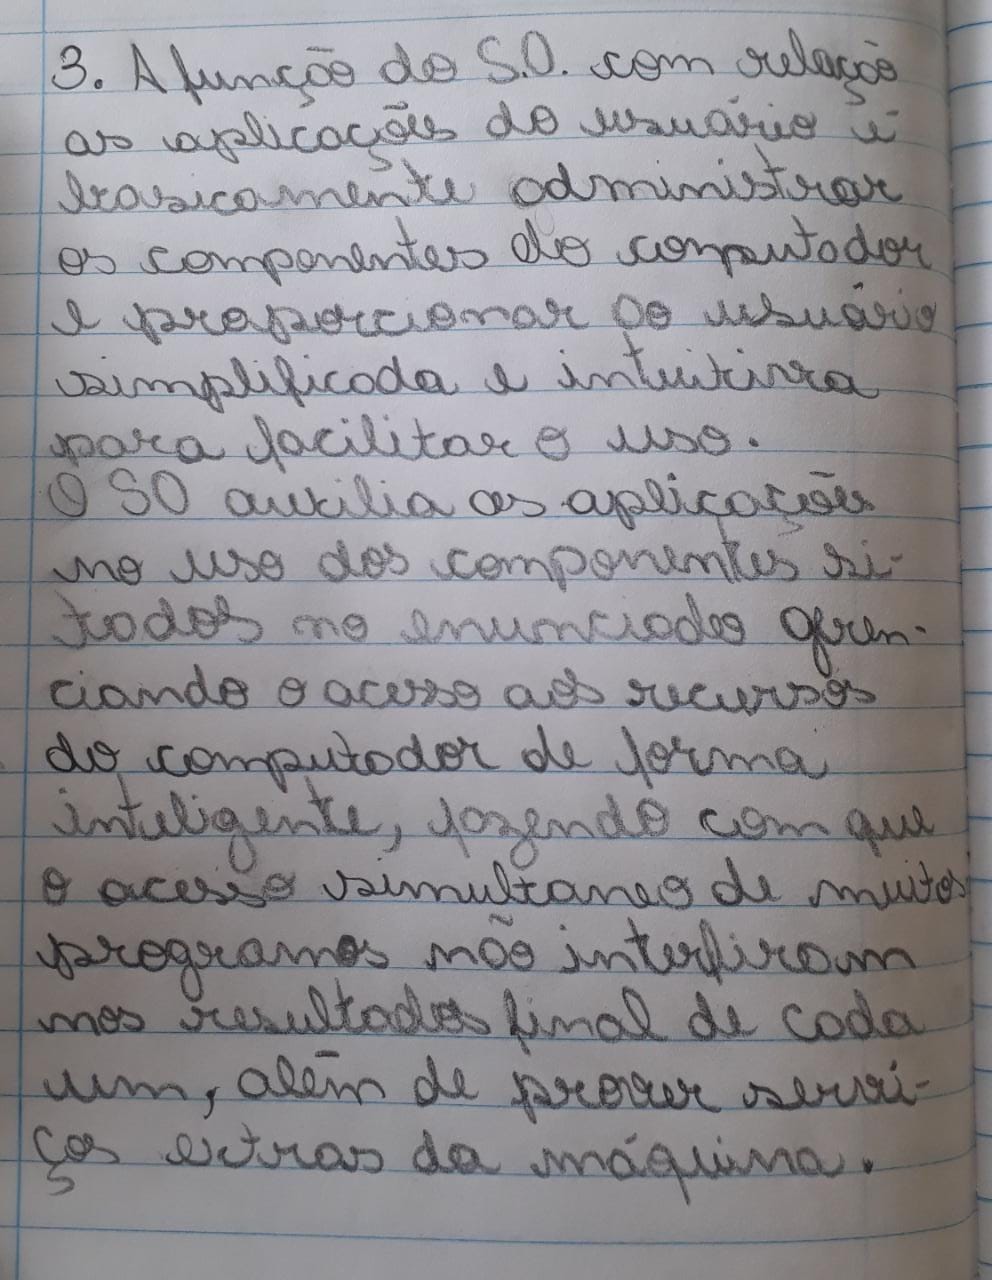 3. A função do S.O. com relação
as aplicações do usuário é
basicamente administrar
os componentes do computador
e proporcionar ao usuário
simplificada e intuitiva
para facilitar o uso.
O SO auxilia as aplicações
no uso dos componentes si-
tados no enunciado geren-
ciando o acesso aos recursos
do computador de forma
inteligente, fazendo com que
o acesso simultaneo de muitos
programas não interfiram
nos resultados final de cada
um, além de prover servi-
ços extras da máquina.